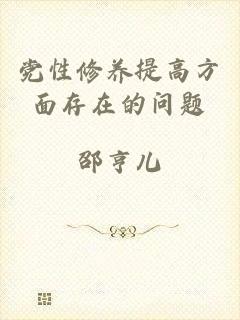 党性修养提高方
面存在的问题
邵亨儿